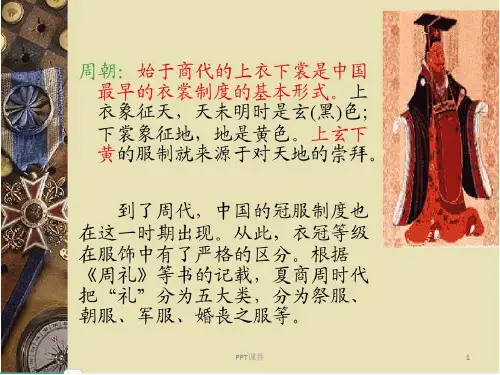 周朝：始于商代的上衣下裳是中国
最早的衣裳制度的基本形式。上
衣象征天，天未明时是玄(黑)色；
下裳象征地，地是黄色。上玄下
黄的服制就来源于对天地的崇拜。
到了周代，中国的冠服制度也
在这一时期出现。从此，衣冠等级
在服饰中有了严格的区分。根据
《周礼》等书的记载，夏商周时代
把“礼”分为五大类，分为祭服、
朝服、军服、婚丧之服等。
PPT课件
1